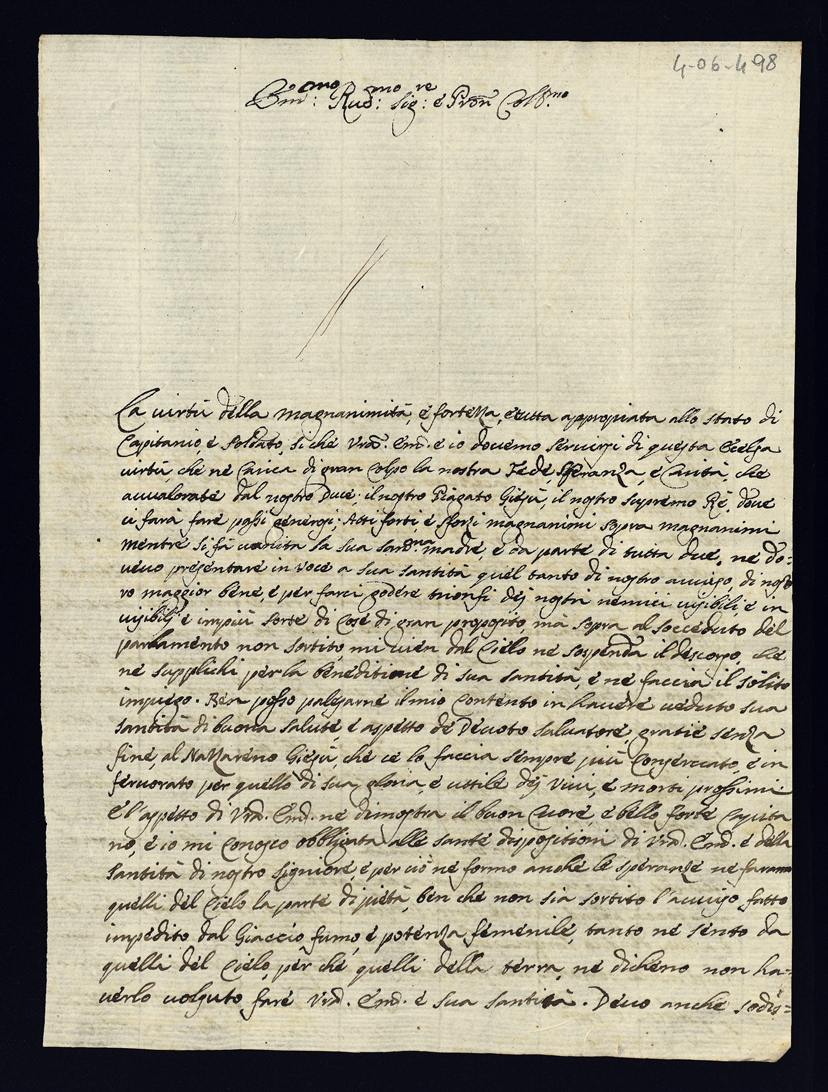 4-06-498
Em:mo Rud:mo Sig:re e Pron Coll.mo
La virtù della magnanimità, e fortezza, e tutta appropriata allo stato di
Capitanio e Soldato, si che Vrã. Em. e io dovemo servirsi di questa Eccelsa
virtù che ne carica di gran Colpo la nostra Fede, Speranza, e Carità, che
avvalorate dal nostro Duce il nostro Piagato Giesù, il nostro supremo Rè, dove
ci farà fare passi generosi, Atti forti e sforzi magnanimi sopra magnanimi
mentre si fà la sua Sand.ma madre, e da parte di tutta due, ne do=
vevo presentare in voce a sua santità quel tanto di nostro avviso di nost
ro maggior bene, e per farci godere trionfi dej nostri nemici visibili, e in
visibilj e impiù sorte di Cose di gran proposito, mà sopra al socceduto del
parlamento non sortito, mi vien dal Cielo ne sospenda il descorso, che
ne supplichi per la beneditione di sua santità, e ne faccia il solito
impiego. Ben posso palesarne il mio Contento in havere veduto sua
santità di buona salute, e aspetto de Devoto salvatore, gratie senza
fine al Nazzareno Giesù, che ce lo faccia sempre più Conservato, e in
fervorato per quello di sua gloria, e uttile dej Vivi, e morti prossimi
E l'aspetto di Vrã. Em. ne dimostra il buon Cuore, e bello forte Capita
no, e io mi Conosco obbligata alle sante dispositioni di Vrã. Em. e della
santità di nostro signiore, e per ciò ne formo anche le speranze ne faranno
quelli del Cielo la parte di pietà, ben che non sia sortito l'avviso fatto
impedito dal Giaccio fumo, e potenza femenile, tanto ne sento da
quelli del Cielo per che quelli della terra, ne dicheno non ha=
verlo volsuto fare Vrã. Em. e sua santità. Devo anche sodis=